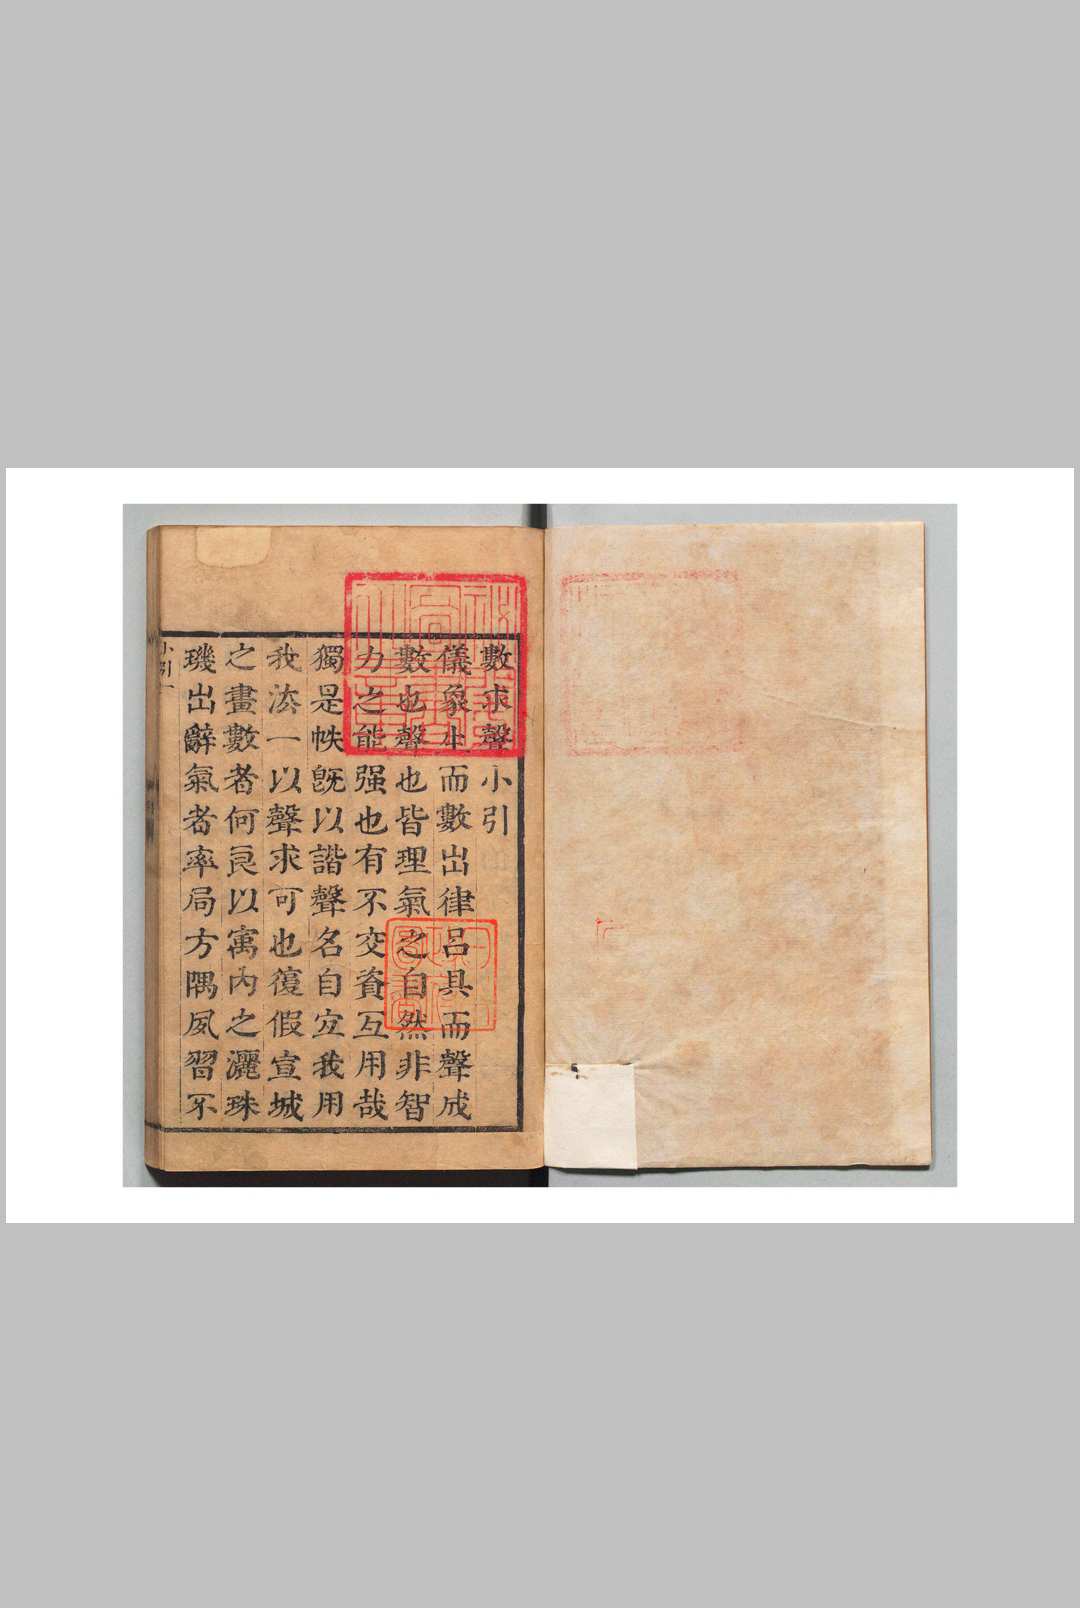 數求聲小引
儀象生而數出律呂具而聲成
數也聲也皆理氣之自然非智
力之能强也有不交資互用哉
獨是帙旣以諧聲名自宜我用
我法一以聲求可也復假宣城
之畫數者何良以寓內之灑珠
璣出辭氣者率局方隅夙習不
小引
一